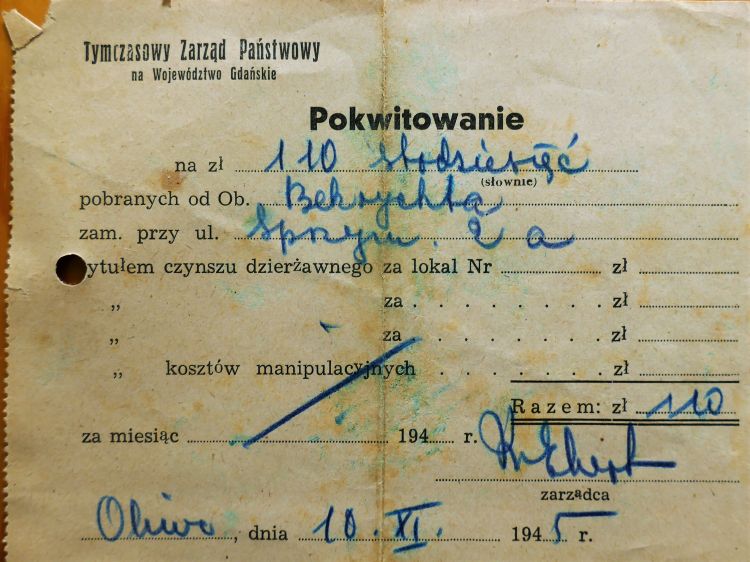 Tymczasowy Zarząd Państwowy
na Województwo Gdańskie
Pokwitowanie
na zł 110 stodziesięć
(słownie)
pobranych od Ob.
zam. przy ul. 2 a
tytułem czynszu dzierżawnego za lokal Nr zł
„ za zł
„ za zł
„ kosztów manipulacyjnych zł
Razem: zł 110
za miesiąc 194 r.
zarządca
Oliwa, dnia 10. XI. 1945 r.